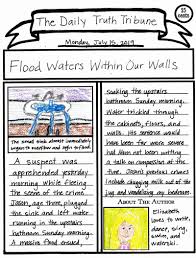 The Daily Truth Tribune
25 cents
Monday, July 15, 2019
Flood Waters Within Our Walls
The small sink almost immediately
began to overflow and agin to flood.
A suspect was
apprehended yesterday
morning while fleeing
the scene of the crime.
Jason, age three, plugged
the sink and left water
running in the upstairs
bathroom Sunday morning.
A massive flood ensued,
soaking the upstairs
bathroom Sunday morning.
Water trickled through
the cabinets, floors, and
walls. His sentence would
have been more severe
had Jason not been writing
a talk on compassion at the
time. Jason's previous crimes
include changing milk out of the
jug and vandalizing couches.
About The Author
Elizabeth
loves to write,
dance, sing,
swim, and
waterski.